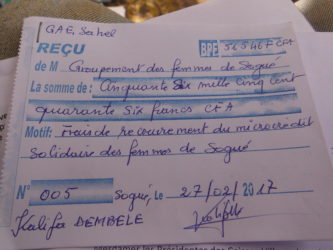 GAE, Sahel
REÇU BPF 565467 CFA
de M Groupement des femmes de Sogué
La somme de : Cinquante Six mille Cinq Cent
quarante Six francs CFA
Motif: Frais de recouvrement du microcrédit
Solidaire des femmes de Sogué
N° 005 Sogué, Le 27/02/2017
Kalifa DEMBELE